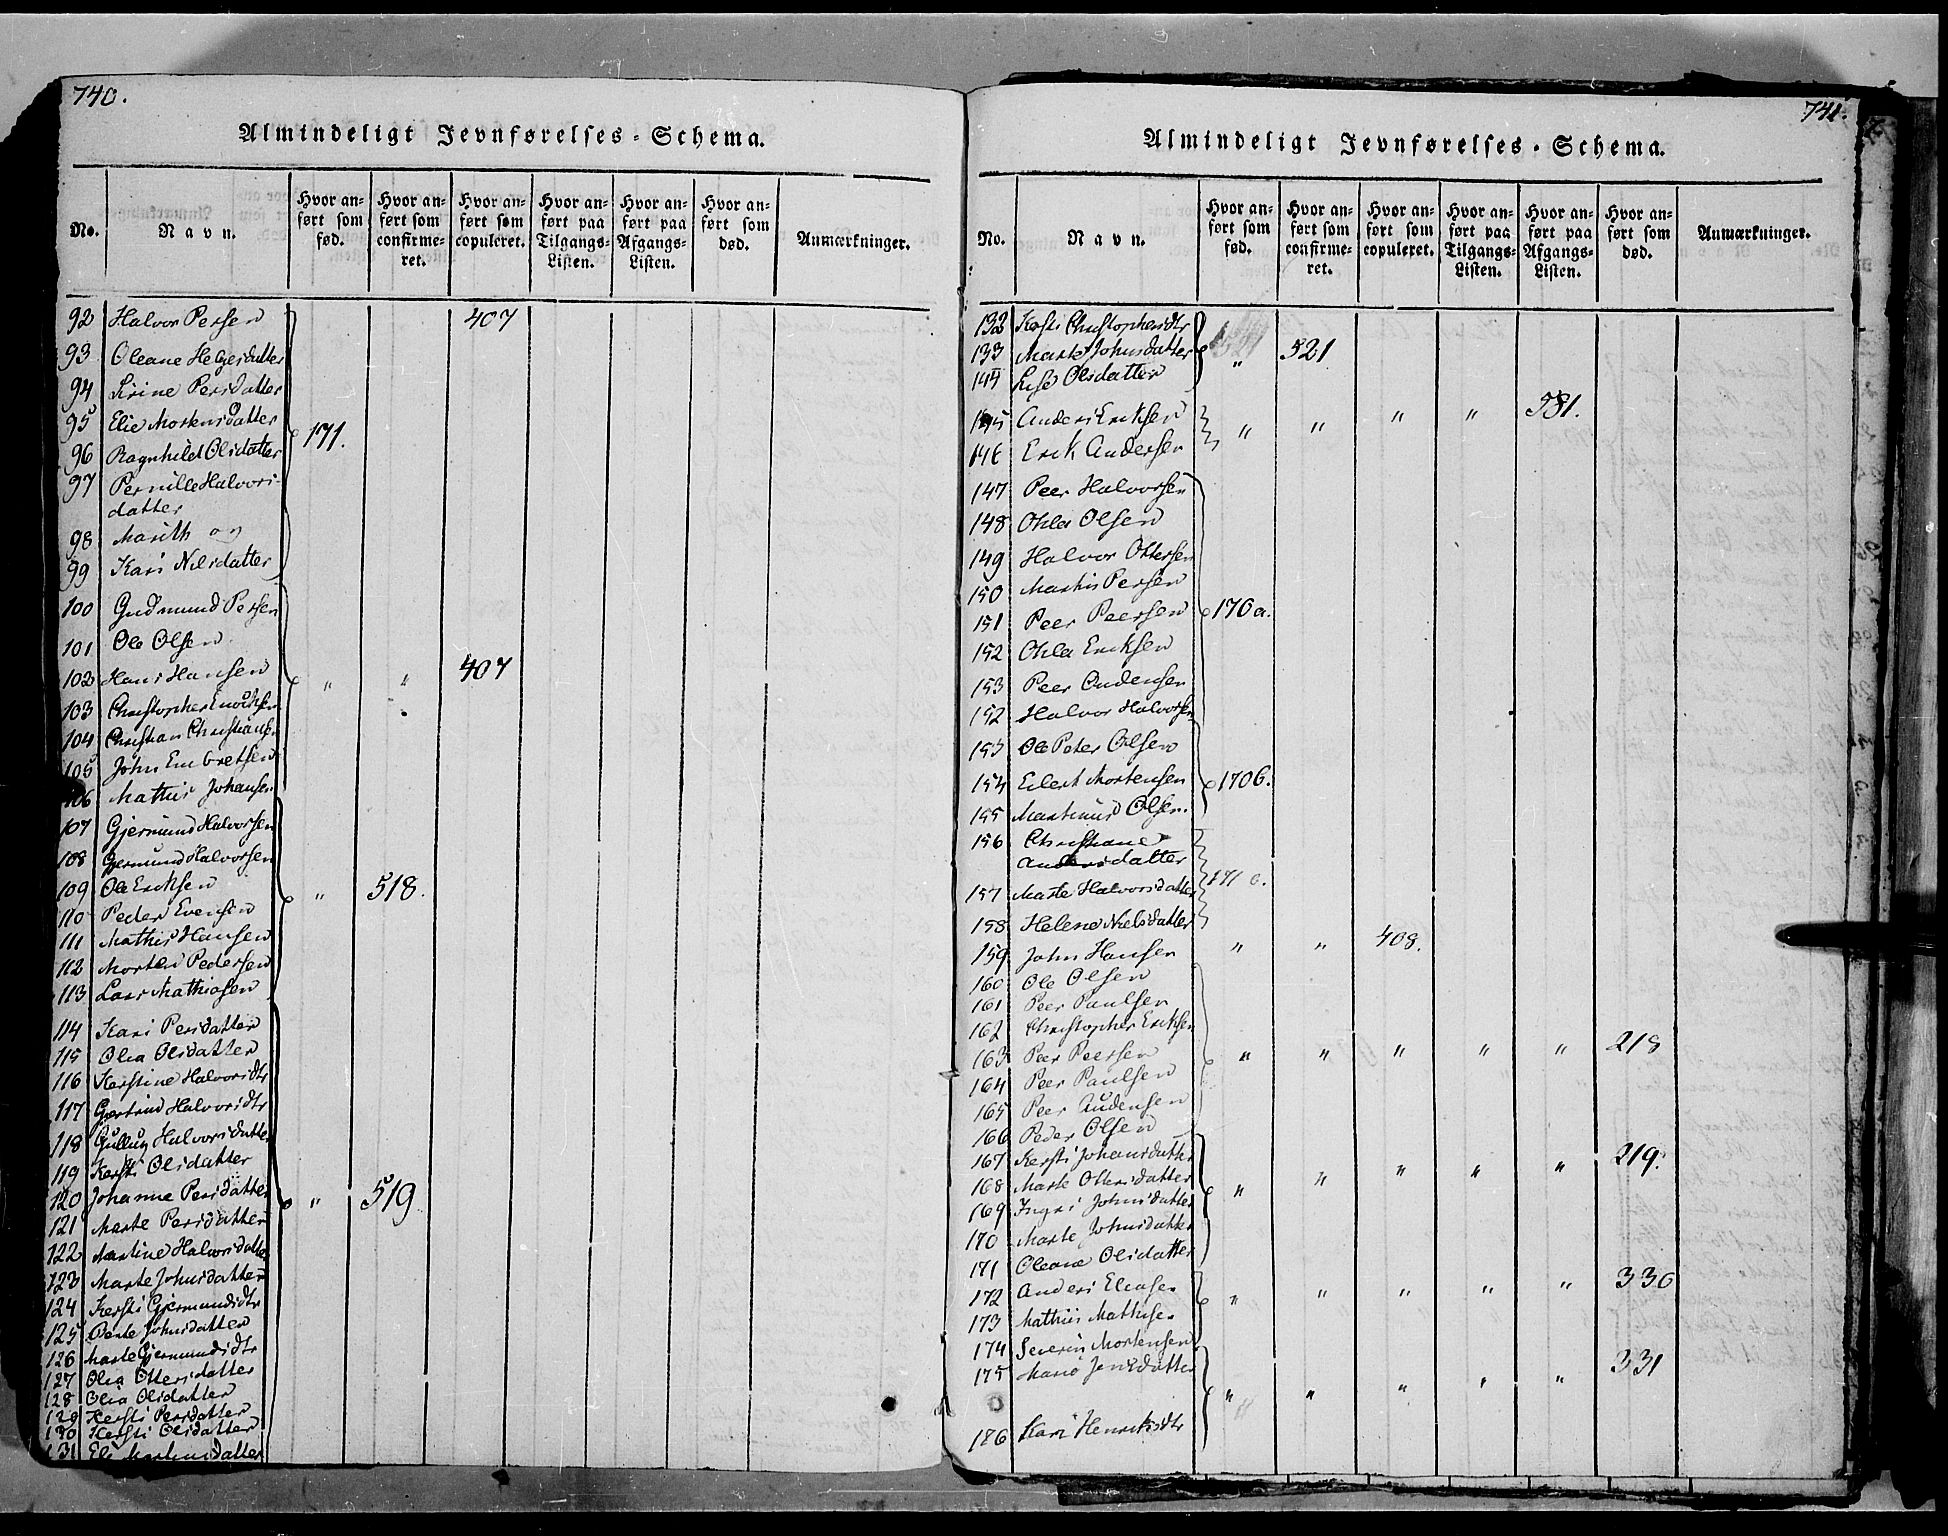 740.
Almindeligt Jevnførelses-Schema.
No.
Navn.
Hvor anført som fød.
Hvor anført som confirmeret.
Hvor anført som copuleret.
Hvor anført paa Tilgangs-Listen.
Hvor anført paa Afgangs-Listen.
Hvor anført som død.
Anmærkninger.
92 Halvor Persen 407
93 Oleane Helgesdatter
94 Sirine Persdatter
95 Elie Mortensdatter
171.
96 Ragnhild Olsdatter
97 Pernille Halvors-
datter
98 Marith og
99 Kari Nilsdatter
100 Gudmund Persen
101 Ole Olsen
102 Hans Hansen " " 407
103 Christopher
104 Christian Christiansen
105 John Embretsen
106 Mathis Johansen
107 Gjermund Halvorsen
108 Gjermund Halvorsen
109 Ole Ericksen " 518.
110 Peder Evensen
111 Mathis Hansen
112 Morten Pedersen
113 Lars Mathiasen
114 Kari Persdatter
115 Olea Olsdatter
116 Kerstine Halvorsdtr
117 Gjertrud Halvorsdtr
118 Gullug Halvorsdatter
119 Kersti Olsdatter
120 Johanne Persdatter " 519.
121 Marte Persdatter
122 Martine Halvorsdatter
123 Marte Johnsdatter
124 Kersti Gjermundsdtr
125 Berte Johnsdatter
126 Marte Gjermundsdtr
127 Olia Ottersdatter
128 Olia Olsdatter
129 Kersti Persdatter
130 Kersti Olsdatter
131 Eli Mortensdatter
741.
Almindeligt Jevnførelses-Schema.
No.
Navn.
Hvor anført som fød.
Hvor anført som confirmeret.
Hvor anført som copuleret.
Hvor anført paa Tilgangs-Listen.
Hvor anført paa Afgangs-Listen.
Hvor anført som død.
Anmærkninger.
132 Kersti Christophersdtr
133 Marte Johnsdatter " 521
Lise Olsdatter
Anders Ericksen " " " " 581.
146 Erick Andersen
147 Peer Halvorsen
148 Ohla Olsen
149 Halvor Ottersen
150 Mathis Persen
151 Peer Peersen 170a.
152 Ohla Ericksen
153 Peer Audensen
152 Halvor Halvorsen
153 Ole Peter Olsen
154 Eilert Mortensen 170b.
155 Martinus Olsen.
156 Christiane
Andersdatter
157 Marte Halvorsdatter
158 Helene Nielsdatter
159 John Hansen " " 408.
160 Ole Olsen
161 Peer Paulsen
162 Christopher Ericksen
163 Peer Peersen " " " " " 218
164 Peer Paulsen
165 Peer Audensen
166 Peder Olsen
167 Kersti Johansdatter
168 Marte Ottersdatter " " " " " 219.
169 Ingri Johnsdatter
170 Marte Johnsdatter
171 Oleane Olsdatter
172 Anders Eliasen " " " " " 330
173 Mathis Mathisen
174 Severin Mortensen
175 Marie Jensdatter " " " " " 331
186 Kari Henricksdtr